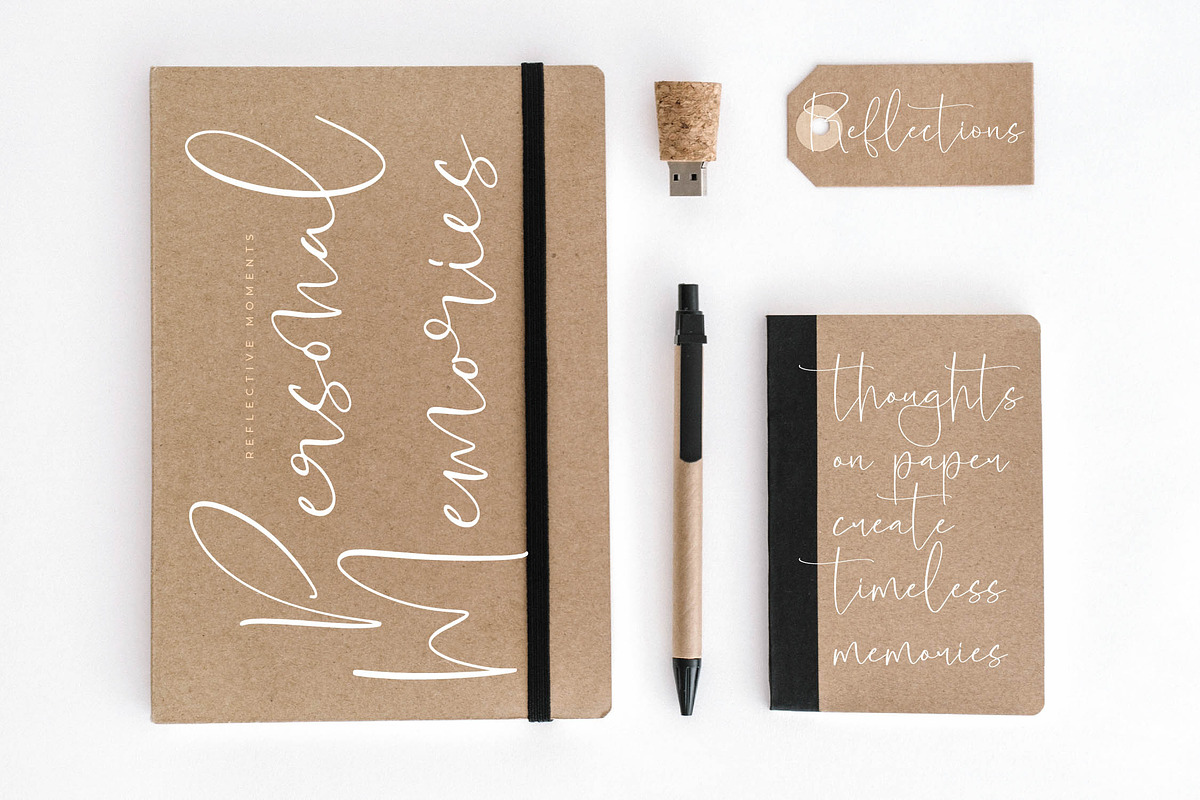 REFLECTIVE MOMENTS
Personal
Memories
Reflections
thoughts
on paper
create
timeless
memories